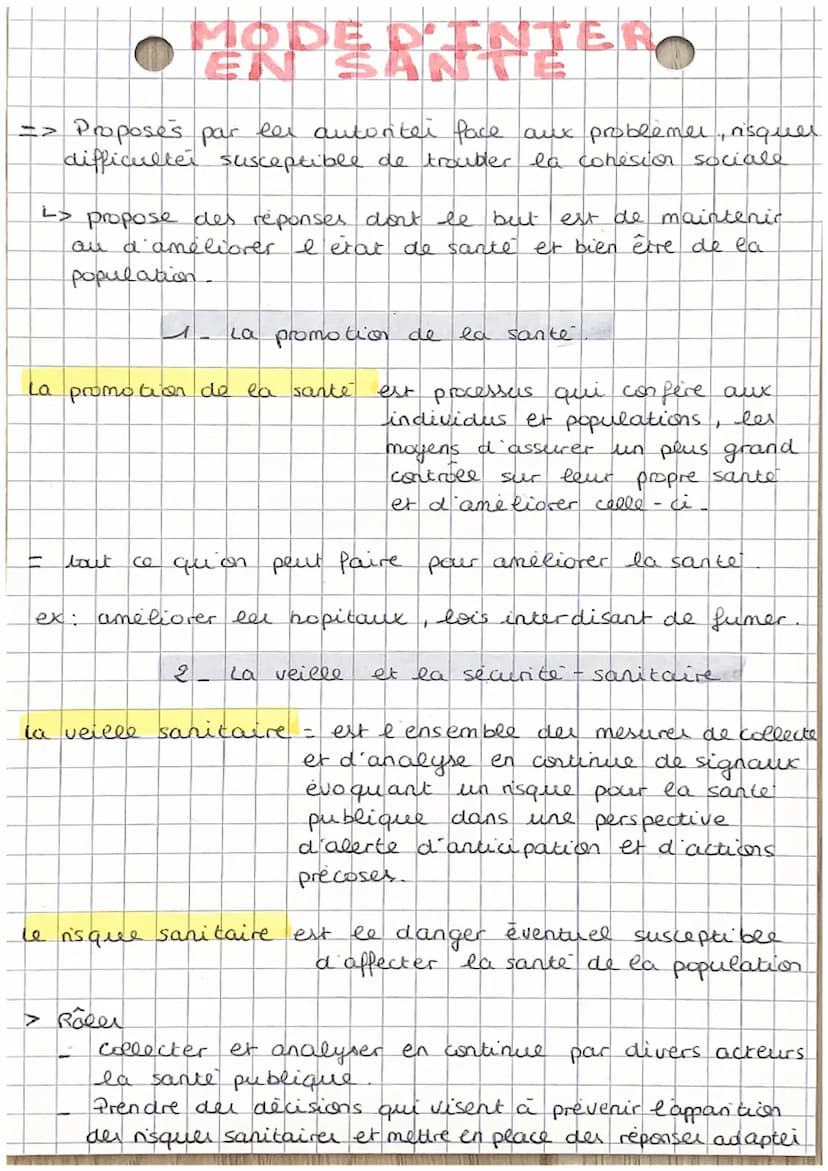 MODE D'INTER
EN SANTE
=> Proposés par les autorités face aux problèmes, risques
difficultés susceptible de troubler la cohésion sociale
↳ propose des réponses dont le but est de maintenir
ou d'améliorer l'état de santé et bien être de la
population.
1- La promotion de la santé.
La promotion de la santé est processus qui confère aux
individus et populations, les
moyens d'assurer un plus grand
contrôle sur leur propre santé
et d'améliorer celle-ci.
= tout ce qu'on peut faire pour améliorer la santé.
ex: améliorer les hopitaux, lois interdisant de fumer.
2- La veille et la sécurité-sanitaire
La veille sanitaire = est l'ensemble des mesures de collecte
et d'analyse en continue de signaux
évoquant un risque pour la santé
publique dans une perspective
d'alerte d'anticipation et d'actions
précoses.
Le risque sanitaire est le danger éventuel susceptible
d'affecter la santé de la population
> Rôles
- Collecter et analyser en continue par divers acteurs
la santé publique.
- Prendre des décisions qui visent à prévenir l'apparition
des risques sanitaires et mettre en place des réponses adaptés